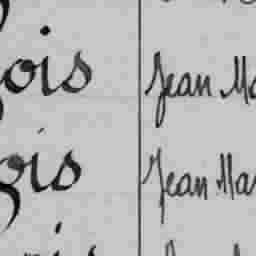 ois Jean Ma
ois Jean Mar